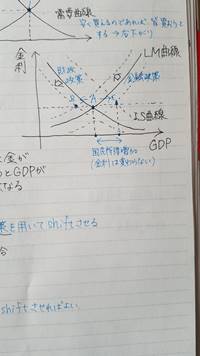 需要曲線
安く買えるのであれば 皆買おうと
する → 右下がり
金利
LM曲線
財政
政策
金融政策
B
A
IS曲線
GDP
国民所得増加
(金利は変わらない)
金が
とGDPが
なる
を用いてshiftさせる
合
shiftさせればよい